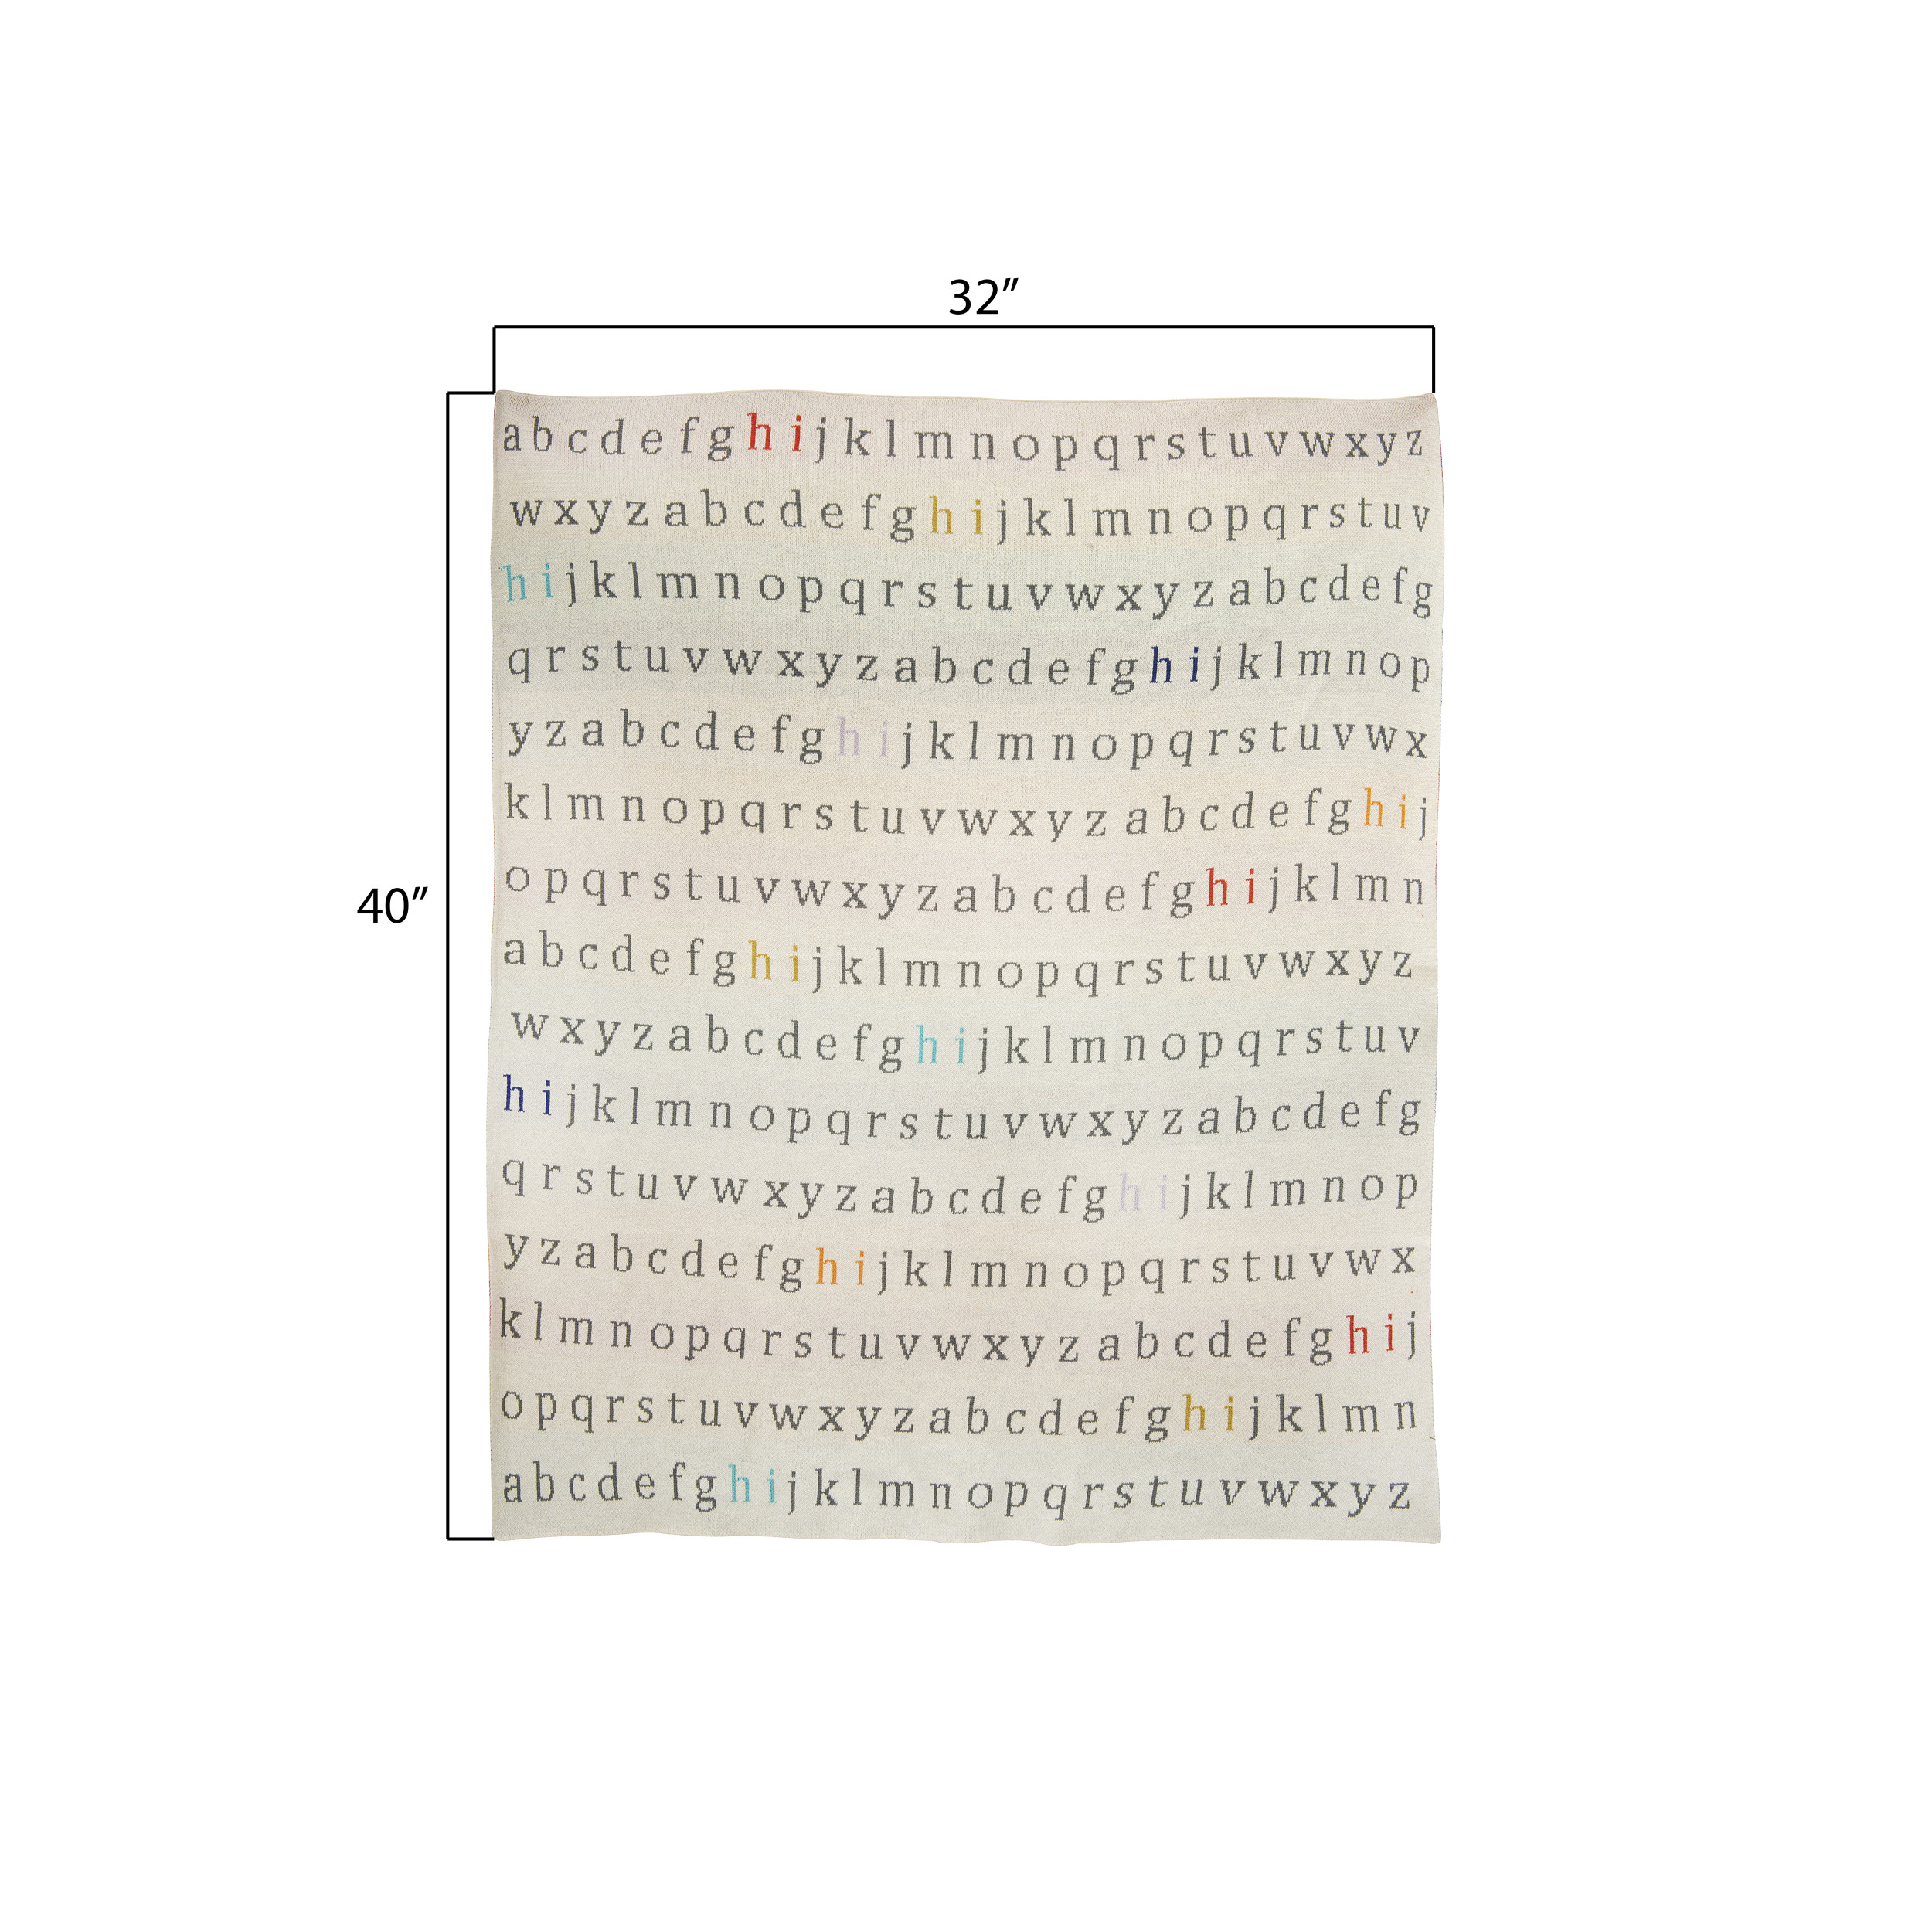 32”
40”
a b c d e f g h i j k l m n o p q r s t u v w x y z
w x y z a b c d e f g h i j k l m n o p q r s t u v
h i j k l m n o p q r s t u v w x y z a b c d e f g
q r s t u v w x y z a b c d e f g h i j k l m n o p
y z a b c d e f g h i j k l m n o p q r s t u v w x
k l m n o p q r s t u v w x y z a b c d e f g h i j
o p q r s t u v w x y z a b c d e f g h i j k l m n
a b c d e f g h i j k l m n o p q r s t u v w x y z
w x y z a b c d e f g h i j k l m n o p q r s t u v
h i j k l m n o p q r s t u v w x y z a b c d e f g
q r s t u v w x y z a b c d e f g h i j k l m n o p
y z a b c d e f g h i j k l m n o p q r s t u v w x
k l m n o p q r s t u v w x y z a b c d e f g h i j
o p q r s t u v w x y z a b c d e f g h i j k l m n
a b c d e f g h i j k l m n o p q r s t u v w x y z